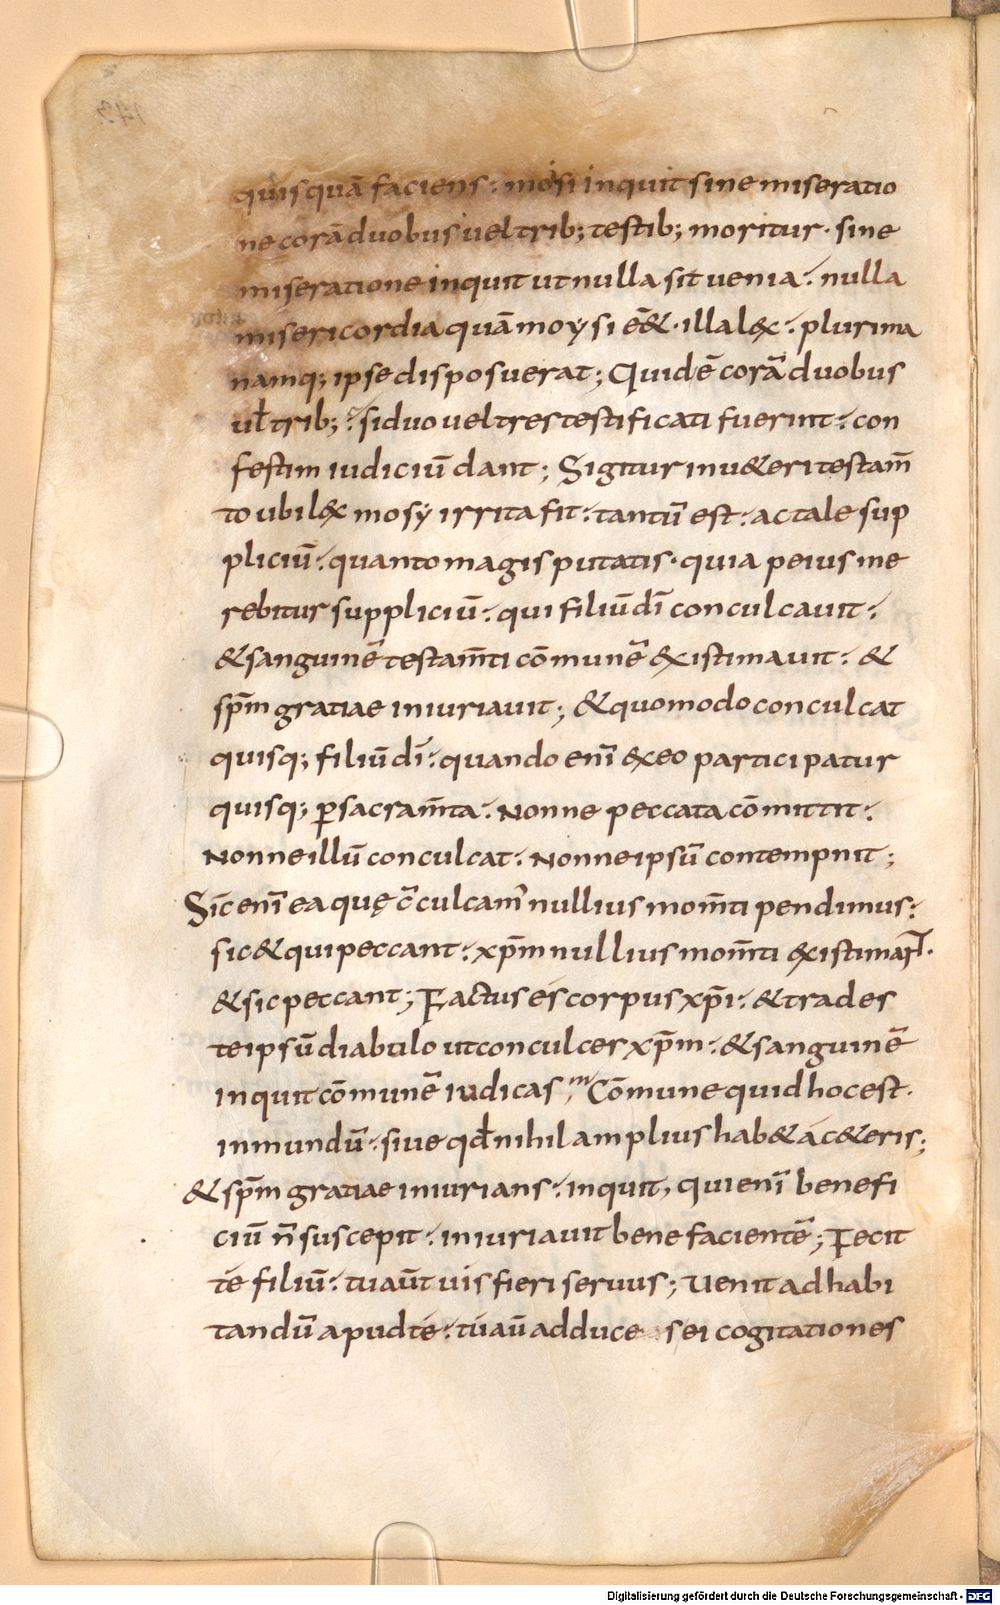 quisquā faciens : mosi inquit sine miseratio
ne corā duobus uel trib; testib; moritur · sine
miseratione inquit ut nulla sit uenia : nulla
misericordia quā moysi ē& · illa l&x : plurima
namq; ipse disposuerat ; Quid ē corā duobus
ul̄ trib; : si duo uel tres testificati fuerint : con
festim iudiciū dant ; Si igitur in u&eri testam̄
to ubi l&x mosẏ irrita fit : tantū est : ac tale sup
pliciū : quanto magis putatis · quia peius me
rebitur suppliciū : qui filiū dī conculcauit :
& sanguinē testam̄ti cōmunē &xistimauit : &
sp̄m gratiae iniuriauit ; & quomodo conculcat
quisq; filiū dī : quando enī &x eo participatur
quisq; p̄ sacram̄ta : Nonne peccata cōmittit :
Nonne illū conculcat : Nonne ipsū contempnit ;
Sīc enī ea quę c̄culcam̄ nullius mom̄ti pendimus :
sic & qui peccant : xp̄m nullius mom̄ti &xistimant ·
& sic peccant ; Factus es corpus xp̄i : & trades
te ipsū diabulo ut conculcer xp̄m : & sanguinē
inquit cōmunē iudicas ;m Cōmune quid hoc est ·
inmundū : siue qd̄ nihil amplius hab& a c&eris ;
& sp̄m gratiae iniurians : inquit, qui enī benefi
ciū n̄ suscepit : iniuriauit bene facientē ; Fecit
te filiū : tu aūt uis fieri seruus ; Uenit ad habi
tandū apud te : tu aū adduce sei cogitationes
Digitalisierung gefördert durch die Deutsche Forschungsgemeinschaft - DFG